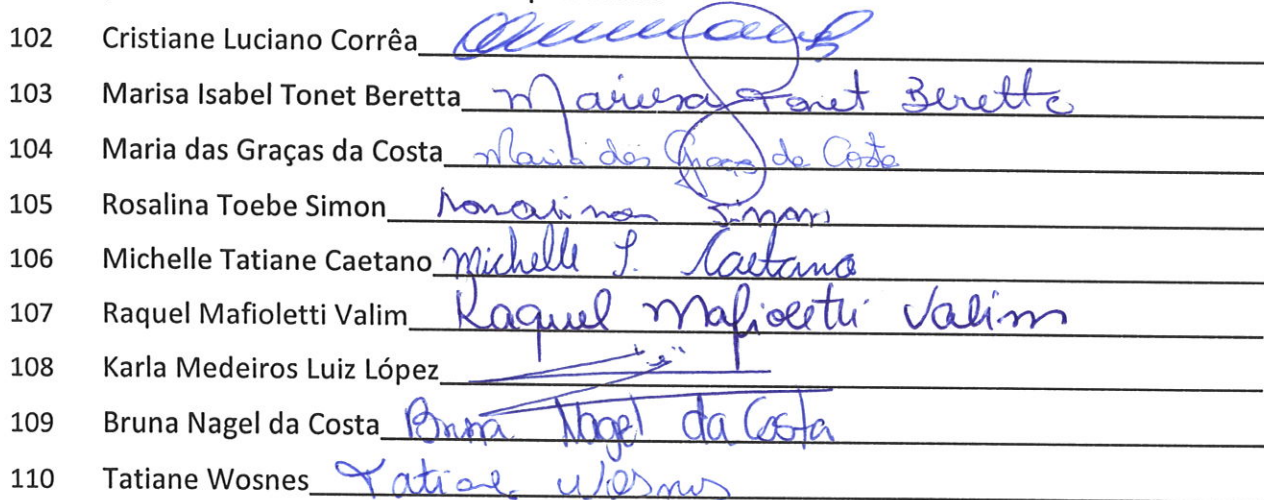 102 Cristiane Luciano Corrêa
103 Marisa Isabel Tonet Beretta Marisa Tonet Beretta
104 Maria das Graças da Costa Maria das Graças da Costa
105 Rosalina Toebe Simon Simon
106 Michelle Tatiane Caetano Michelle T. Caetano
107 Raquel Mafioletti Valim Raquel Mafioletti Valim
108 Karla Medeiros Luiz López
109 Bruna Nagel da Costa Bruna Nagel da Costa
110 Tatiane Wosnes Tatiane Wosnes